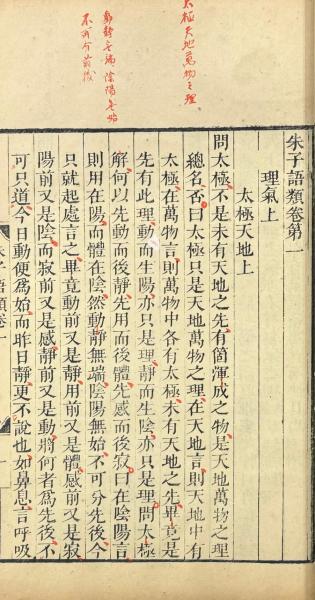 太極天地萬物之理
動靜無端陰陽無始
不可分前後
朱子語類卷第一
理氣上
太極天地上
問太極不是未有天地之先有箇渾成之物是天地萬物之理
總名否曰太極只是天地萬物之理在天地言則天地中有
太極在萬物言則萬物中各有太極未有天地之先畢竟是
先有此理動而生陽亦只是理靜而生陰亦只是理問太極
解何以先動而後靜先用而後體先感而後寂曰在陰陽言
則用在陽而體在陰然動靜無端陰陽無始不可分先後今
只就起處言之畢竟動前又是靜用前又是體感前又是寂
陽前又是陰而寂前又是感靜前又是動將何者爲先後不
可只道今日動便爲始而昨日靜更不說也如鼻息言呼吸
朱子語類卷一